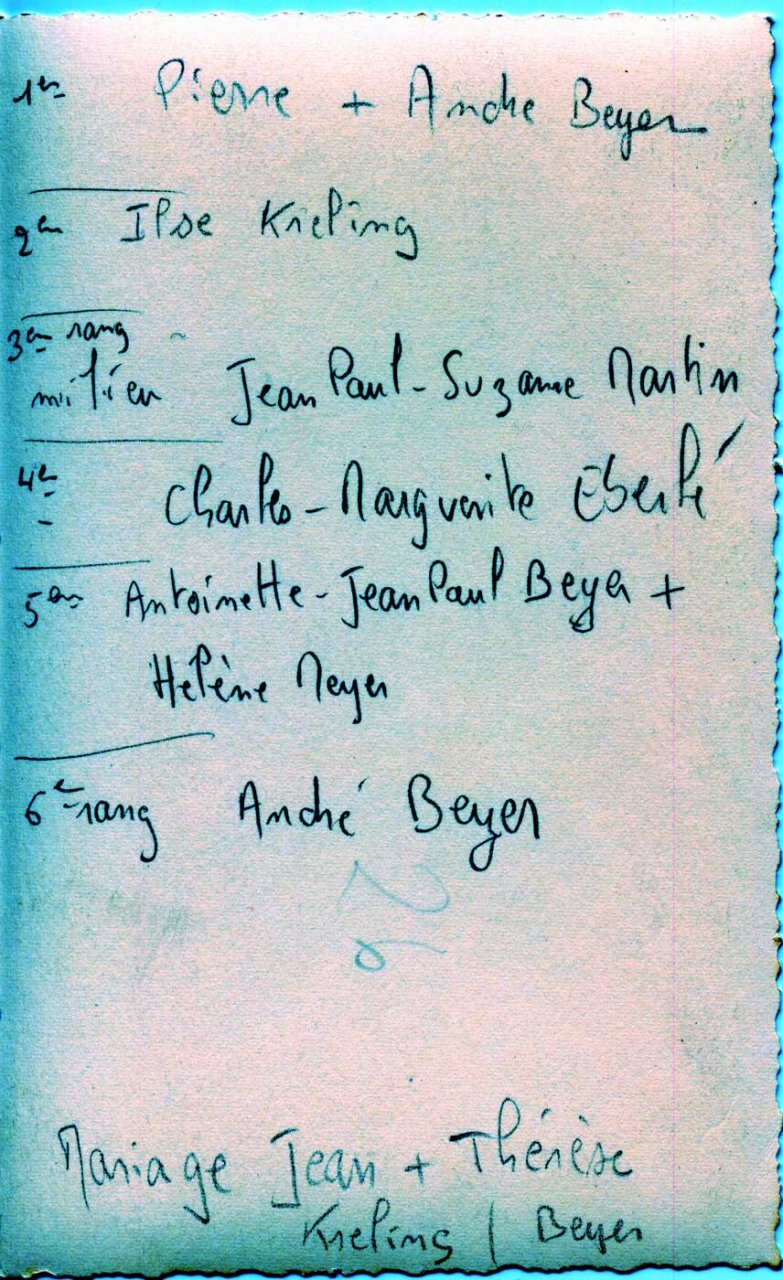 1er Pierre + Andre Beyer
2em Ilse Kieling
3em rang
milieu Jean Paul - Suzanne Martin
4e Charles - Marguerite Eberlé
5em Antoinette - Jean Paul Beyer +
Helène Meyer
6e rang André Beyer
Mariage Jean + Thérèse
Kieling / Beyer